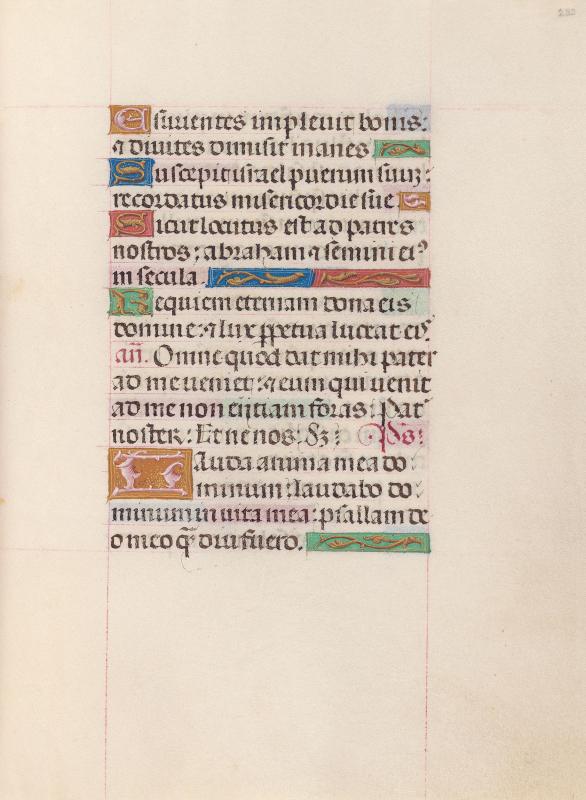 230
Esurientes impleuit bonis:
⁊ diuites dimisit inanes
Suscepit israel puerum suuʒ:
recordatus misericordie sue
Sicut locutus est ad patres
nostros: abraham ⁊ semini eiꝰ
in secula.
Requiem eternam dona eis
domine: ⁊ lux ꝑpetua luceat eiſ
añ. Omne quod dat mihi pater
ad me ueniet: ⁊ eum qui uenit
ad me non eijciam foras: Patʳ
noster: Et ne nos: Sꝫ: Ps:
Lauda anima mea do
minum: laudabo do
minum in uita mea: psallam de
o meo qͣ̄diu fuero.